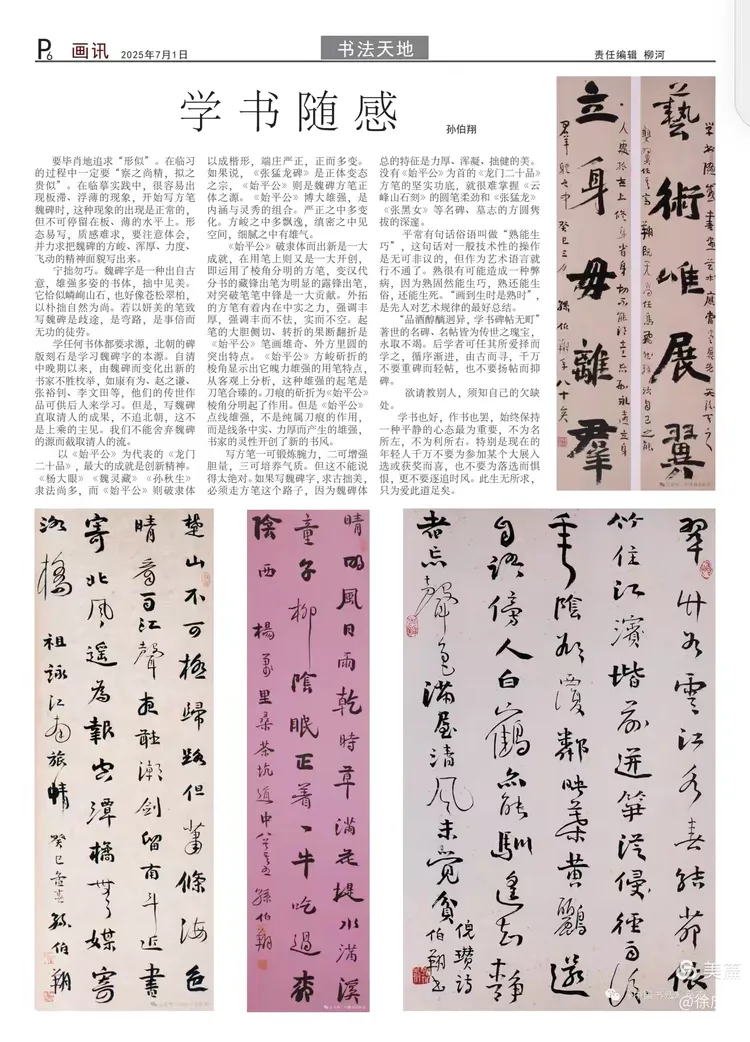 P6 画讯 2025年7月1日
书法天地
责任编辑 柳河
学书随感
孙伯翔
要毕肖地追求“形似”。在临习
的过程中一定要“察之尚精，拟之
贵似”。在临摹实践中，很容易出
现板滞、浮薄的现象，开始写方笔
魏碑时，这种现象的出现是正常的，
但不可停留在板、薄的水平上。形
态易写，质感难求，要注意体会，
并力求把魏碑的方峻、浑厚、力度、
飞动的精神面貌写出来。
宁拙勿巧。魏碑字是一种出自古
意，雄强多姿的书体，拙中见美。
它恰似嶙峋山石，也好像苍松翠柏，
以朴拙自然为尚。若以妍美的笔致
写魏碑是歧途，是弯路，是事倍而
无功的徒劳。
学任何书体都要求源，北朝的碑
版刻石是学习魏碑字的本源。自清
中晚期以来，由魏碑而变化出新的
书家不胜枚举，如康有为、赵之谦、
张裕钊、李文田等，他们的传世作
品可供后人来学习。但是，写魏碑
直取清人的成果，不追北朝，这不
是上乘的主见。我们不能舍弃魏碑
的源而截取清人的流。
以《始平公》为代表的《龙门
二十品》，最大的成就是创新精神。
《杨大眼》《魏灵藏》《孙秋生》
隶法尚多，而《始平公》则破隶体
以成楷形，端庄严正，正而多变。
如果说，《张猛龙碑》是正体变态
之宗，《始平公》则是魏碑方笔正
体之源。《始平公》博大雄强，是
内涵与灵秀的组合。严正之中多变
化。方峻之中多飘逸，缜密之中见
空间，细腻之中有雄气。
《始平公》破隶体而出新是一大
成就，在用笔上则又是一大开创，
即运用了棱角分明的方笔，变汉代
分书的藏锋出笔为明显的露锋出笔，
对突破笔笔中锋是一大贡献。外拓
的方笔有着内在中实之力，强调丰
厚，强调丰而不怯，实而不空。起
笔的大胆侧切、转折的果断翻折是
《始平公》笔画雄奇、外方里圆的
突出特点。《始平公》方峻斫折的
棱角显示出它魄力雄强的用笔特点，
从客观上分析，这种雄强的起笔是
刀笔合臻的。刀痕的斫折为《始平公》
棱角分明起了作用。但是《始平公》
点线雄强，不是纯属刀痕的作用，
而是线条中实、力厚而产生的雄强，
书家的灵性开创了新的书风。
写方笔一可锻炼腕力，二可增强
胆量，三可培养气质。但这不能说
得太绝对。如果写魏碑字，求古拙美，
必须走方笔这个路子，因为魏碑体
总的特征是力厚、浑凝、拙健的美。
没有《始平公》为首的《龙门二十品》
方笔的坚实功底，就很难掌握《云
峰山石刻》的圆笔柔劲和《张猛龙》
《张黑女》等名碑、墓志的方圆隽
拔的深邃。
平常有句话俗语叫做“熟能生
巧”，这句对一般技术性的操作
是无可非议的，但作为艺术语言就
行不通了。熟很有可能造成一种弊
病，因为熟固然能生巧，熟还能生
俗，还能生死。“画到生时是熟时”，
是先人对艺术规律的最好总结。
“品酒醇酶迥异，学书碑帖无町”
著世的名碑、名帖皆为传世之瑰宝，
永取不竭。后学者可任其所爱择而
学之，循序渐进，由古而寻，千万
不要重碑而轻帖，也不要扬帖而抑
碑。
欲请教别人，须知自己的欠缺
处。
学书也好，作书也罢，始终保持
一种平静的心态最为重要，不为名
所左，不为利所右。特别是现在的
年轻人千万不要为参加某个大展入
选或获奖而喜，也不要为落选而惆
恨，更不要逐追时风。此生无所求，
只为爱此道足矣。
藝術唯展翼
立身毋離羣
楚山不可極歸路但蕭條海色
晴看雨江聲夜聽潮劍留南斗近書
寄北風遙為報空潭橘無媒寄
洛橋
祖詠江南旅情
癸巳
孫伯翔
晴明風日雨乾時草滿花堤水滿溪
童子柳陰眠正着一牛吃過柳
陰西
楊萬里桑茶坑道中
孫伯翔
翠竹
雲江
春結茆依
竹住江濱堦前迸筍從侵徑雨後
垂陰欲覆鄰映葉黃鸝還
自語傍人白鶴亦能馴遙知靜
者忘聲色滿屋清風未覺貧
倪瓚詩
伯翔書
美篇